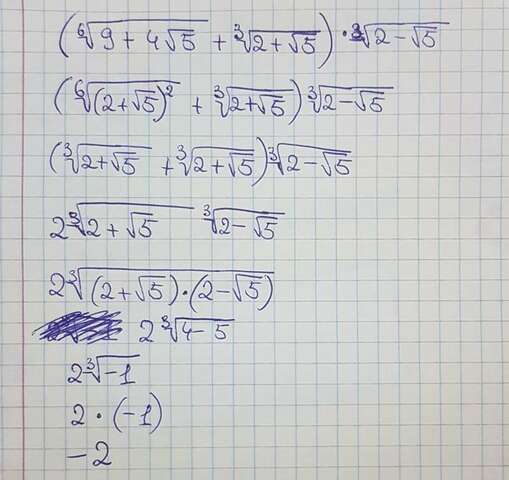 (⁶√(9 + 4√5) + ³√(2 + √5)) · ³√(2 - √5)
(⁶√((2 + √5)²) + ³√(2 + √5)) ³√(2 - √5)
(³√(2 + √5) + ³√(2 + √5)) ³√(2 - √5)
2 ³√(2 + √5) ³√(2 - √5)
2 ³√((2 + √5) · (2 - √5))
2 ³√(4 - 5)
2 ³√(-1)
2 · (-1)
-2